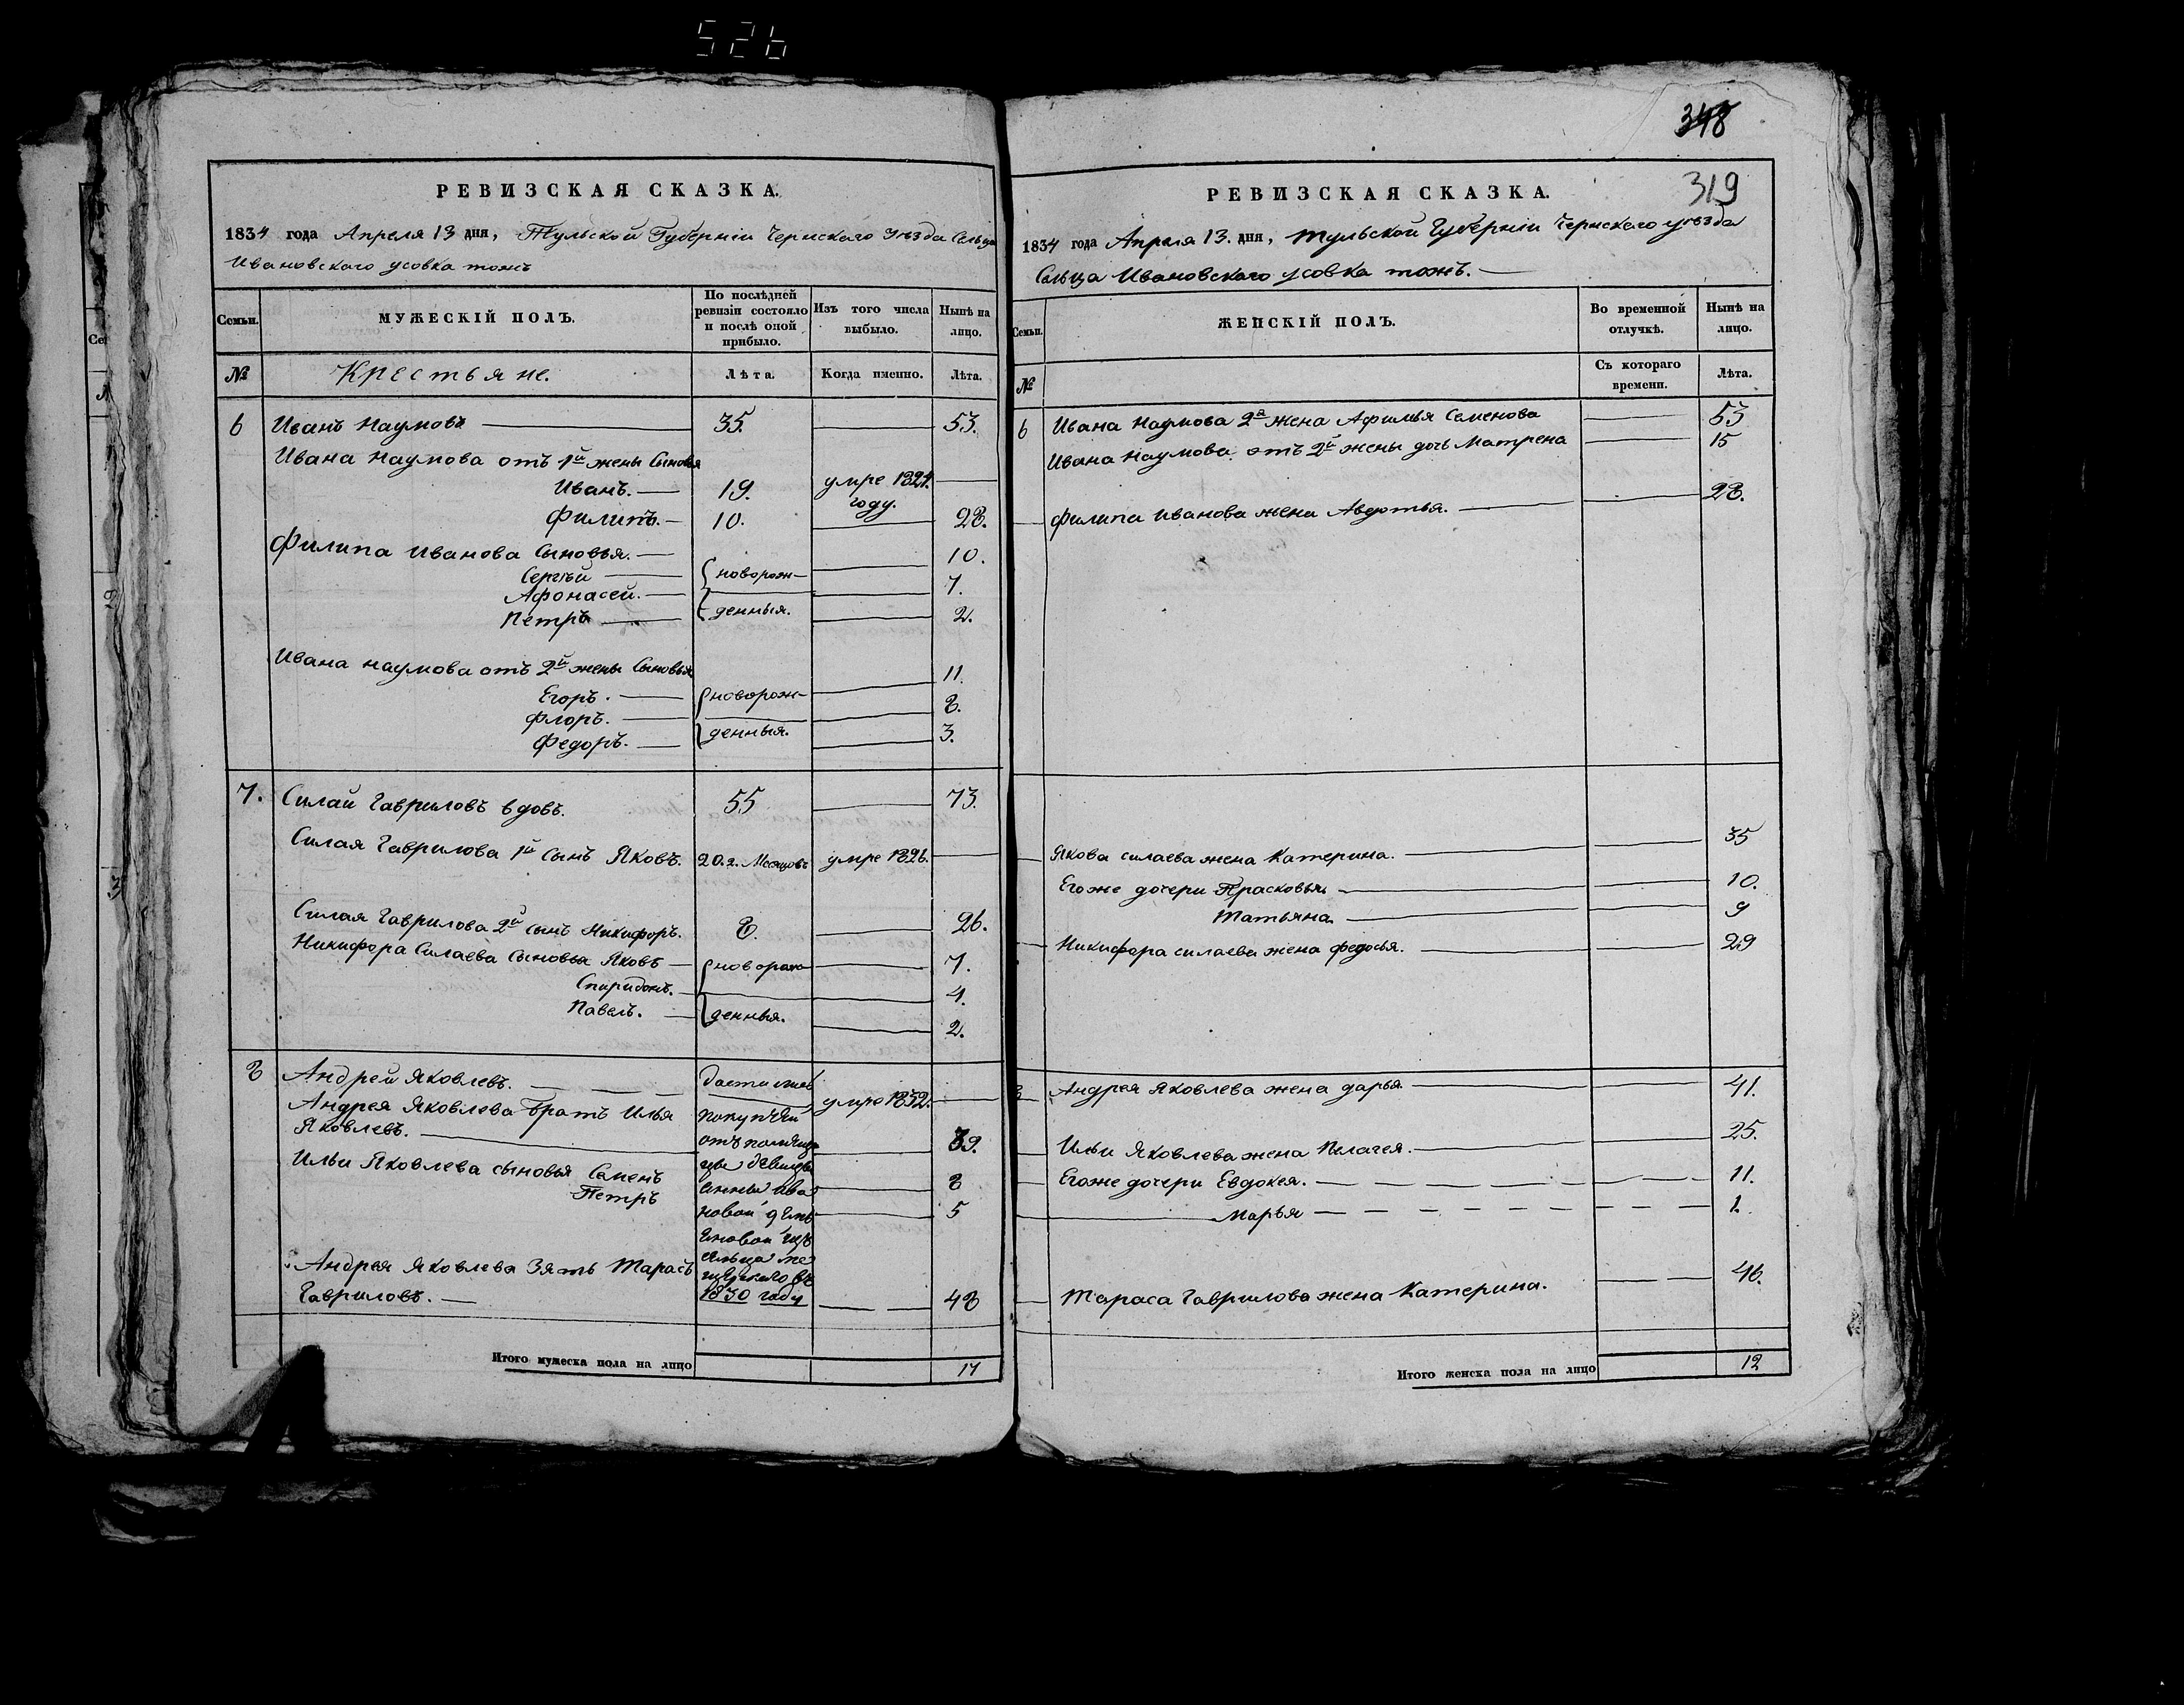 526
РЕВИЗСКАЯ СКАЗКА.
1834 года Апреля 13 дня, Тульской Губернiи Чернскаго Уѣзда Сельца
Ивановскаго усовка тожъ
Семьи.
МУЖЕСКIЙ ПОЛЪ.
По послѣдней
ревизiи состояло
и послѣ оной
прибыло.
Изъ того числа
выбыло.
Нынѣ на
лицо.
№
Крестьяне.
Лѣта.
Когда именно.
Лѣта.
6 Иванъ Наумовъ 35. 53.
Ивана Наумова отъ 1й жены Сыновья
Иванъ. 19. умре 1824.
году.
Филипъ. 10. 28.
Филипа Иванова Сыновья.
Сергѣй новорож- 10.
Афонасей. 7.
Петръ денныя. 2.
Ивана наумова отъ 2й жены Сыновья
Егоръ. новорож- 11.
Флоръ. 8.
Федоръ. денныя. 3.
7. Силай Гавриловъ вдовъ. 55 73.
Силая Гаврилова 1й Сынъ Яковъ. 20.2. Месяцовъ умре 1826.
Силая Гаврилова 2й сынъ Никифоръ. 8. 26.
Никифора Силаева Сыновья Яковъ новорож- 7.
Спиридонъ. 4.
Павелъ. денныя. 2.
8 Андрей Яковлевъ. умре 1832.
Андрея Яковлева Братъ Илья
Яковлевъ. 39.
Ильи Яковлева сыновья Семенъ 8
Петръ 5
Андрея Яковлева Зять Тарасъ
Гавриловъ. 1830 году 48
Итого мужеска пола на лицо 17
348
319
РЕВИЗСКАЯ СКАЗКА.
1834 года Апреля 13. дня, Тульской Губернiи Чернскаго уѣзда
Сельца Ивановскаго усовка тожъ.
Семьи.
ЖЕНСКIЙ ПОЛЪ.
Во временной
отлучкѣ.
Нынѣ на
лицо.
№
Съ котораго
времени.
Лѣта.
6 Ивана Наумова 2я жена Афимья Семенова 53
Ивана Наумова отъ 2й жены дочь Матрена 15
Филипа Иванова жена Авдотья. 28.
Якова силаева жена Катерина. 35
Егоже дочери Прасковья. 10.
Татьяна. 9
Никифора силаева жена федосья. 29
8 Андрея Яковлева жена дарья 41.
Ильи Яковлева жена Пелагея. 25.
Егоже дочери Евдокея. 11.
Марья 1.
Тараса Гаврилова жена Катерина. 46.
Итого женска пола на лицо 12